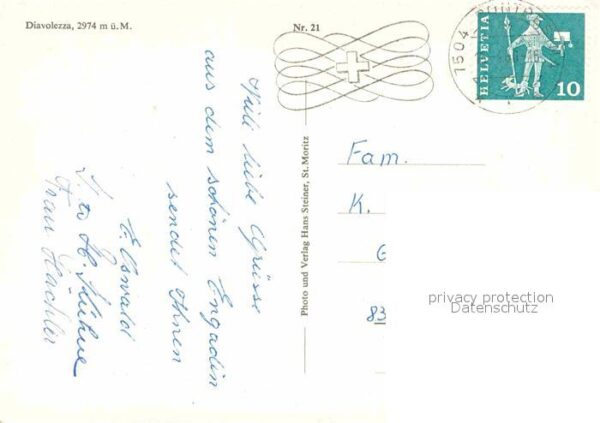 Diavolezza, 2974 m ü. M.
Nr. 21
1504
HELVETIA
10
Viele liebe Grüsse
aus dem schönen Engadin
sendet Ihnen
E. Oswald
Frau Hächler
Photo und Verlag Hans Steiner, St. Moritz
Fam.
K.
G
83
privacy protection
Datenschutz